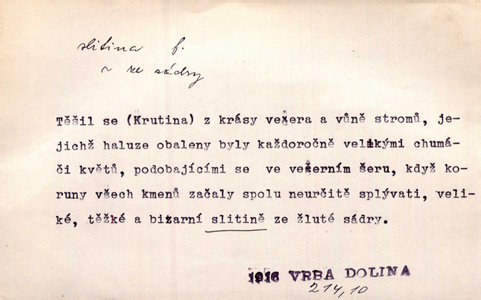 slitina f.
~ ze sádry
Těšil se (Krutina) z krásy večera a vůně stromů, je-
jichž haluze obaleny byly každoročně velikými chumá-
či květů, podobajícími se ve večerním šeru, když ko-
runy všech kmenů začaly spolu neurčitě splývati, veli-
ké, těžké a bizarní slitině ze žluté sádry.
1916 VRBA DOLINA
214,10